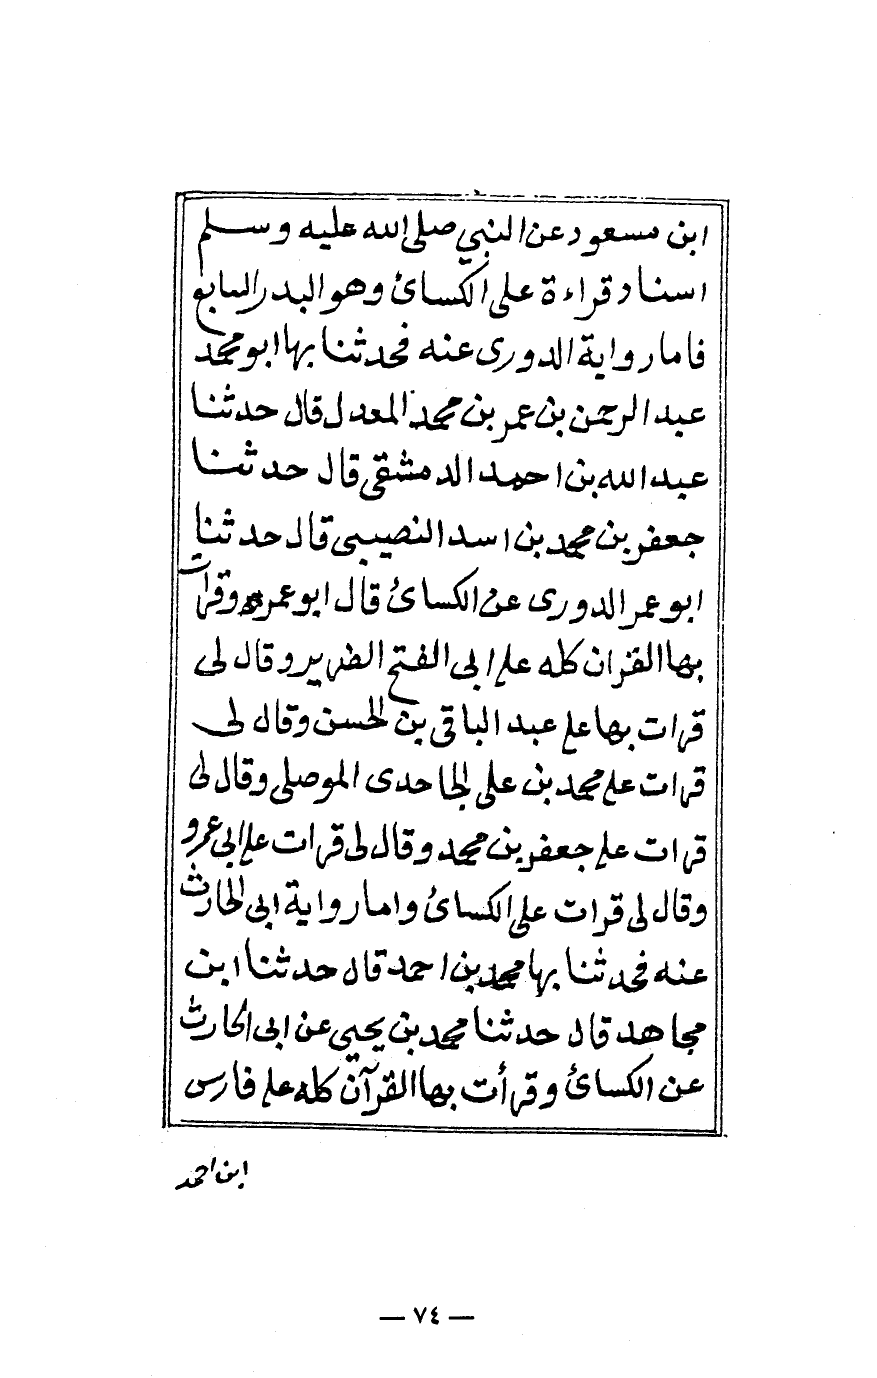 ابن مسعود عن النبي صلى الله عليه وسلم
اسناد قراءة على الكسائ وهو البدر السابع
فاما رواية الدورى عنه فحدثنا بها ابو محمد
عبد الرحمن بن عمر بن محمد المعدل قال حدثنا
عبد الله بن احمد الدمشقى قال حدثنا
جعفر بن محمد بن اسد النصيبى قال حدثنا
ابو عمر الدورى عن الكسائ قال ابو عمرو وقرات
بها القران كله على ابى الفتح الضرير وقال لى
قرات بها على عبد الباقى بن الحسن وقال لى
قرات على محمد بن على الجاحدى الموصلى وقال لى
قرات على جعفر بن محمد وقال لى قرات على ابى عمرو
وقال لى قرات على الكسائ واما رواية ابى الحارث
عنه فحدثنا بها محمد بن احمد قال حدثنا ابن
مجاهد قال حدثنا محمد بن يحيى عن ابى الحارث
عن الكسائ وقرأت بها القرآن كله على فارس
ابن احمد
— ٧٤ —